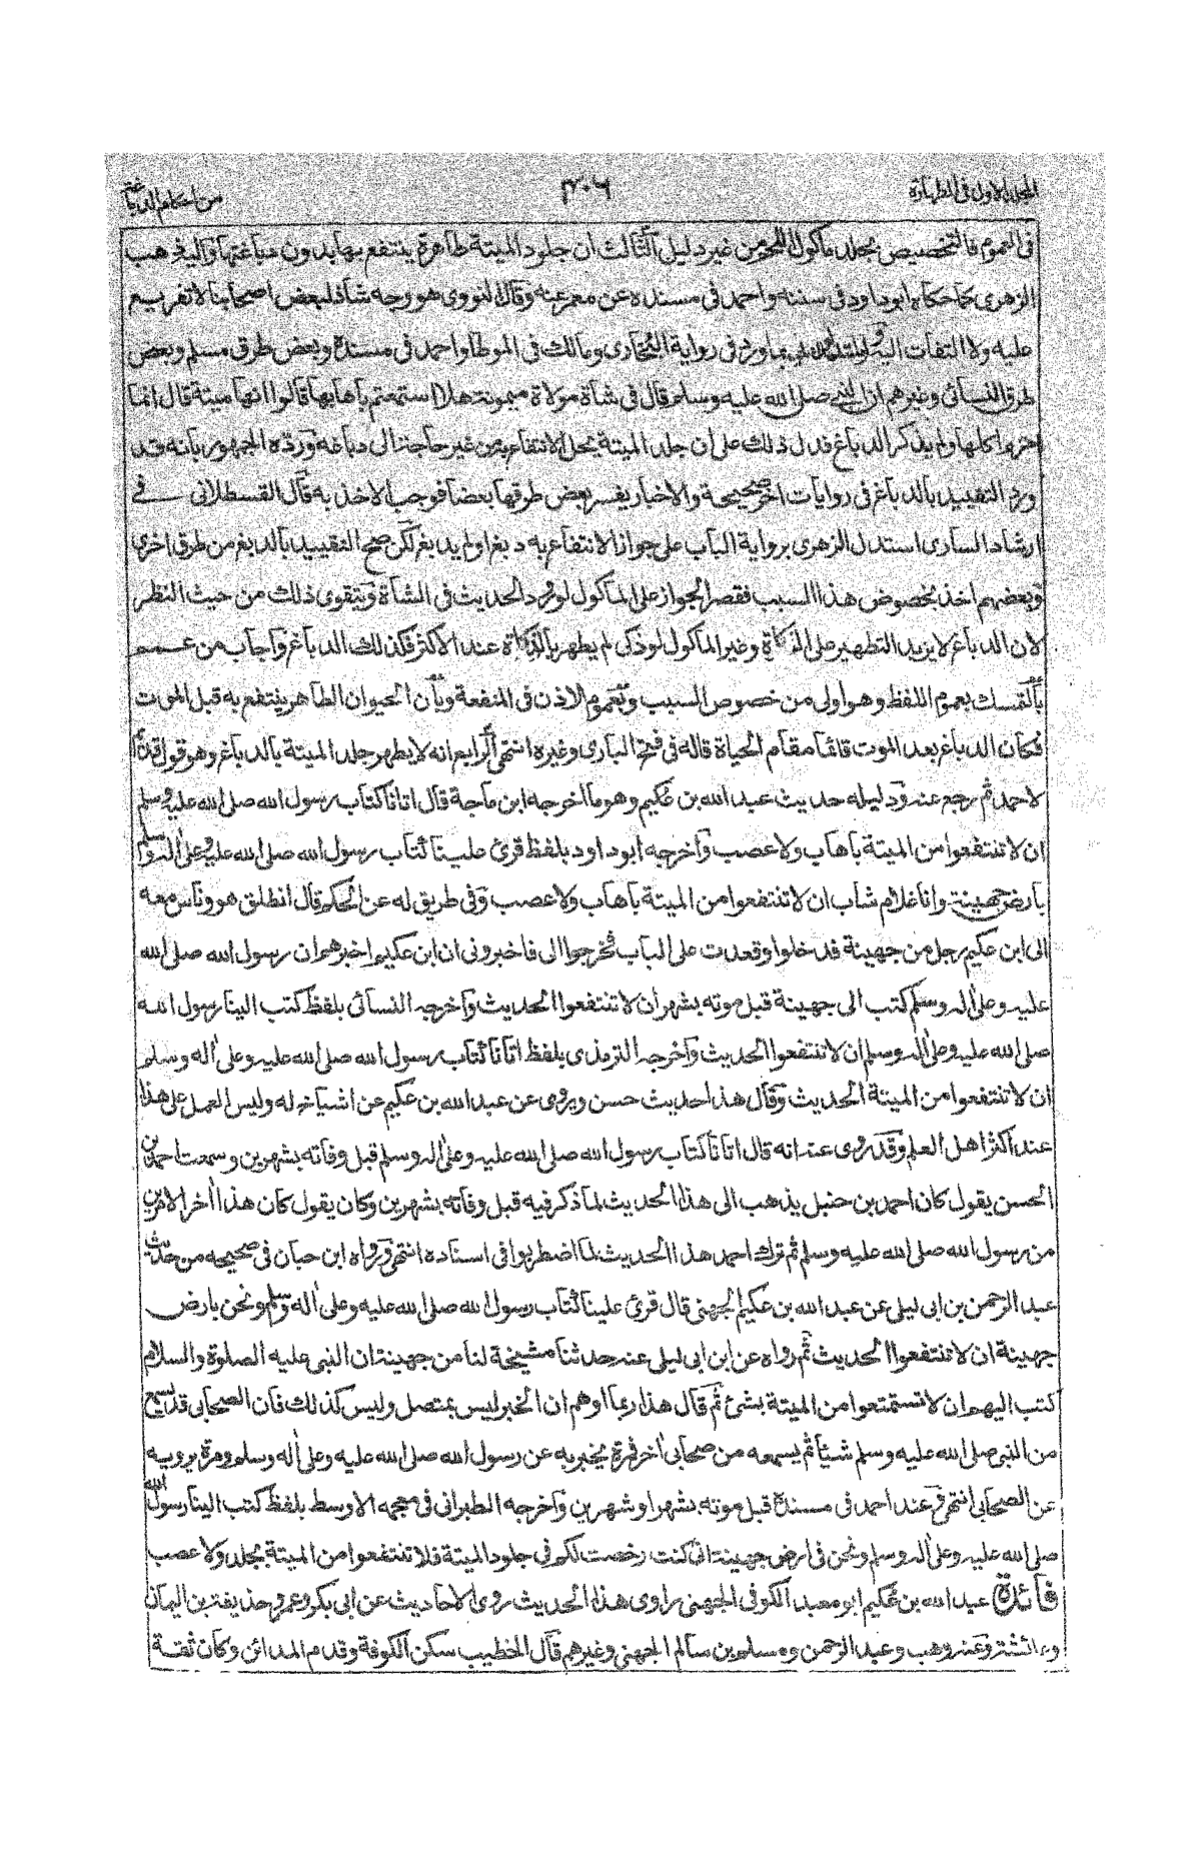 المجلد الاول فى الطهارة
٤٠٦
من احكام الدباغة
فى العموم فالتخصيص بجلد ماكول اللحم من غير دليل الثالث ان جلود الميتة طاهرة ينتفع بها بدون دباغتها واليه ذهب
الزهرى كما حكاه ابوداود فى سننه واحمد فى مسنده عن معمر عنه وقال النووى هو وجه شاذ لبعض اصحابنا لا تفريع
عليه ولا التفات اليه بما ورد فى رواية البخارى ومالك فى الموطا واحمد فى مسنده وبعض طرق مسلم وبعض
طرق النسائى وغيرهم ان النبى صلى الله عليه وسلم قال فى شاة مولاة ميمونة هلا استمتعتم باهابها قالوا انها ميتة قال انما
حرم اكلها ولم يذكر الدباغ فدل ذلك على ان جلد الميتة يحل الانتفاع به من غير حاجة الى دباغه ورده الجمهور بانه قد
ورد التقييد بالدباغ فى روايات اخر صحيحة والاخبار يفسر بعض طرقها بعضا فوجب الاخذ به قال القسطلانى فى
ارشاد السارى استدل الزهرى برواية الباب على جواز الانتفاع به دبغ او لم يدبغ لكن صح التقييد بالدبغ من طرق اخرى
وبعضهم اخذ بخصوص هذا السبب فقصر الجواز على الماكول لورود الحديث فى الشاة ويتقوى ذلك من حيث النظر
لان الدباغ لا يزيد التطهير على الزكاة وغير الماكول لو ذكى لم يطهر بالذكاة عند الاكثر فكذلك الدباغ واجاب من عمم
بالتمسك بعموم اللفظ وهو اولى من خصوص السبب وبعموم الاذن فى المنفعة وبان الحيوان الطاهر ينتفع به قبل الموت
فكان الدباغ بعد الموت قائما مقام الحياة قاله فى فتح البارى وغيره انتهى الرابع انه لا يطهر جلد الميتة بالدباغ وهو قول قديم
لاحمد ثم رجع عنه ودليله حديث عبد الله بن عكيم وهو ما اخرجه ابن ماجة قال اتانا كتاب رسول الله صلى الله عليه وسلم
ان لا تنتفعوا من الميتة باهاب ولا عصب واخرجه ابوداود بلفظ قرئ علينا كتاب رسول الله صلى الله عليه وعلى اله وسلم
بارض جهينة وانا غلام شاب ان لا تنتفعوا من الميتة باهاب ولا عصب وفى طريق له عن الحكم قال انطلق هو وناس معه
الى ابن عكيم رجل من جهينة فدخلوا وقعدت على الباب فخرجوا الى فاخبرونى ان ابن عكيم اخبرهم ان رسول الله صلى الله
عليه وعلى اله وسلم كتب الى جهينة قبل موته بشهر ان لا تنتفعوا الحديث واخرجه النسائى بلفظ كتب الينا رسول الله
صلى الله عليه وعلى اله وسلم ان لا تنتفعوا الحديث واخرجه الترمذى بلفظ اتانا كتاب رسول الله صلى الله عليه وعلى اله وسلم
ان لا تنتفعوا من الميتة الحديث وقال هذا حديث حسن ويروى عن عبد الله بن عكيم عن اشياخ له وليس العمل على هذا
عند اكثر اهل العلم وقد روى عنه انه قال اتانا كتاب رسول الله صلى الله عليه وعلى اله وسلم قبل وفاته بشهرين وسمعت احمد بن
الحسن يقول كان احمد بن حنبل يذهب الى هذا الحديث لما ذكر فيه قبل وفاته بشهرين وكان يقول كان هذا اخر الامرين
من رسول الله صلى الله عليه وسلم ثم ترك احمد هذا الحديث لما اضطربوا فى اسناده انتهى ورواه ابن حبان فى صحيحه من حديث
عبد الرحمن بن ابى ليلى عن عبد الله بن عكيم الجهنى قال قرئ علينا كتاب رسول الله صلى الله عليه وعلى اله وسلم ونحن بارض
جهينة ان لا تنتفعوا الحديث ثم رواه عن ابن ابى ليلى عنه حدثنا مشيخة لنا من جهينة ان النبى عليه الصلوة والسلام
كتب اليهم ان لا تستمتعوا من الميتة بشئ ثم قال هذا ربما اوهم ان الخبر ليس بمتصل وليس كذلك فان الصحابى قد يسمع
من النبى صلى الله عليه وسلم شيئا ثم يسمعه من صحابى اخر فمرة يخبر به عن رسول الله صلى الله عليه وعلى اله وسلم ومرة يرويه
عن الصحابى انتهى وعند احمد فى مسنده قبل موته بشهر او شهرين واخرجه الطبرانى فى معجمه الاوسط بلفظ كتب الينا رسول الله
صلى الله عليه وعلى اله وسلم ونحن فى ارض جهينة انى كنت رخصت لكم فى جلود الميتة فلا تنتفعوا من الميتة بجلد ولا عصب
فائدة عبد الله بن عكيم ابو معبد الكوفى الجهنى راوى هذا الحديث روى الاحاديث عن ابى بكر وعمر وحذيفة بن اليمان
وعائشة وعنه وهب وعبد الرحمن ومسلم بن سالم الجهنى وغيرهم قال الخطيب سكن الكوفة وقدم المدائن وكان ثقة